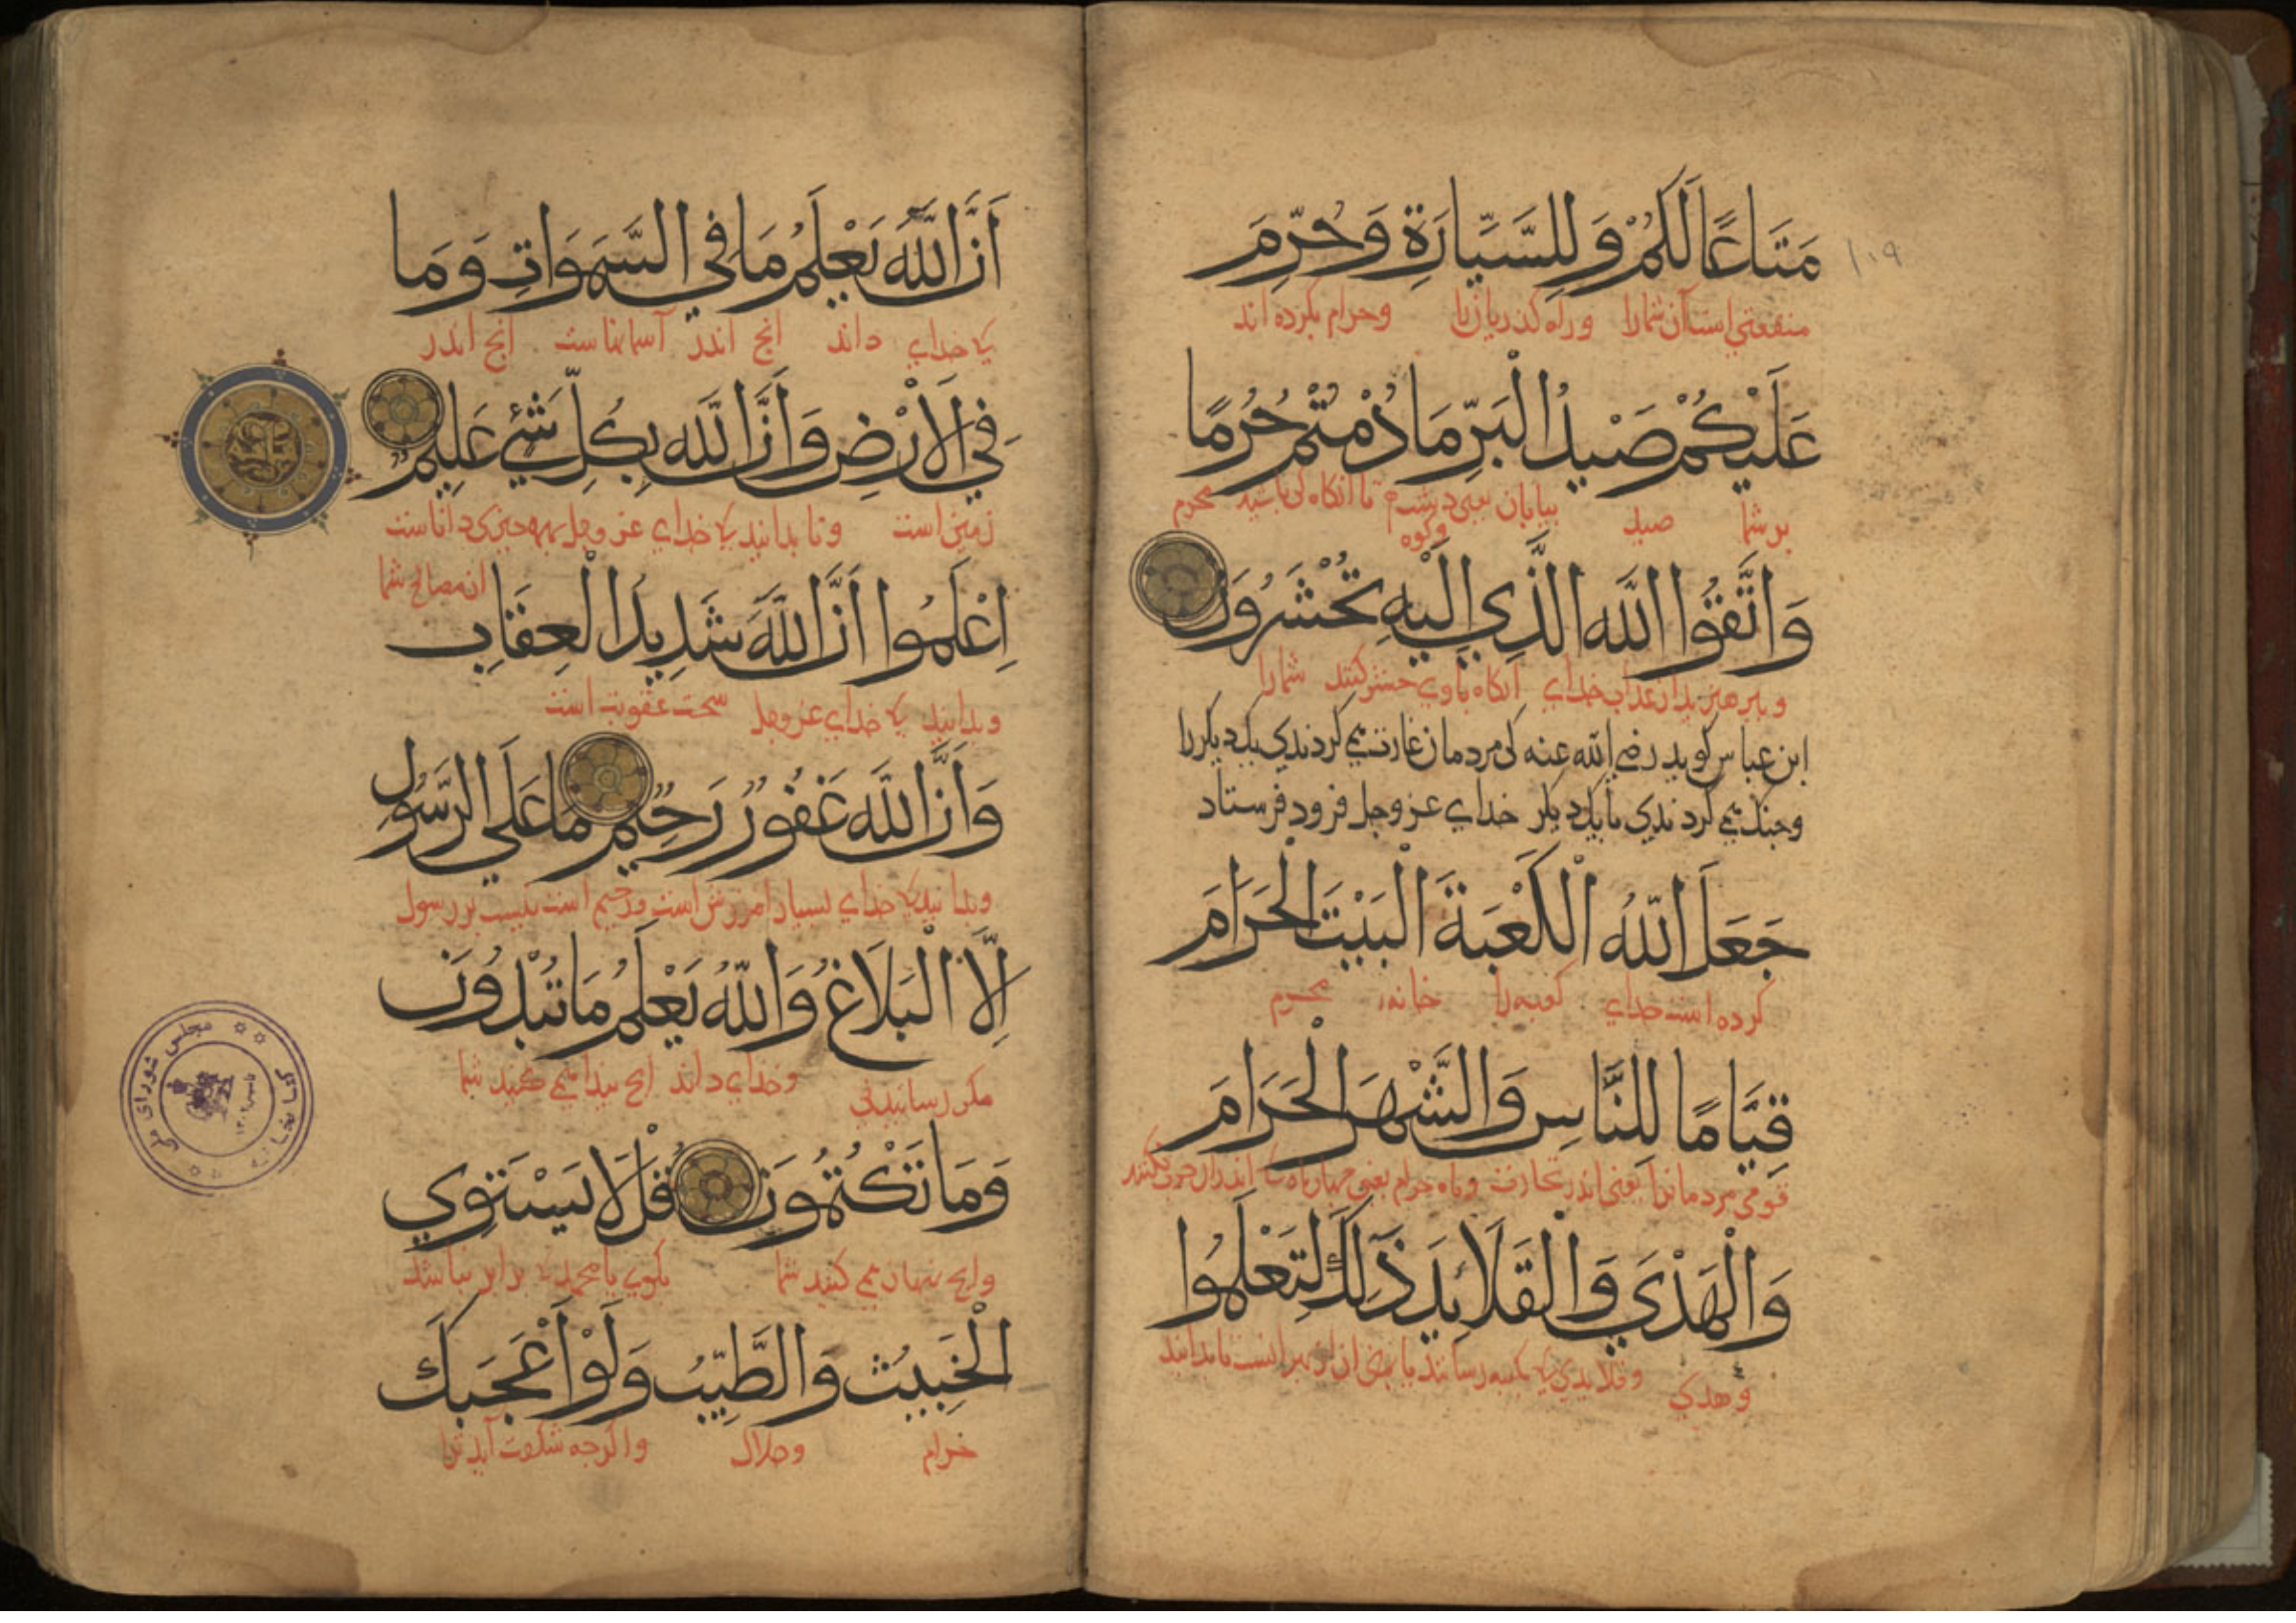 ١٠٩
مَتَاعًا لَكُمْ وَلِلسَّيَّارَةِ وَحُرِّمَ
منفعتی است آن شمارا وراه کذریان را وحرام بکرده اند
عَلَيْكُمْ صَيْدُ الْبَرِّ مَا دُمْتُمْ حُرُمًا
بر شما صید بیابان یعنی دشت وکوه تا انکاه کی باشید محرم
وَاتَّقُوا اللَّهَ الَّذِي إِلَيْهِ تُحْشَرُونَ
وبپرهیزید از عذاب خدای انکاه باوی حشر کنند شمارا
ابن عباس کوید رضی الله عنه کی مردمان غارت می کردندی یکدیکر را
وجنک می کردندی با یکدیکر خدای عز وجل فرود فرستاد
جَعَلَ اللَّهُ الْكَعْبَةَ الْبَيْتَ الْحَرَامَ
کرده است خدای کعبه را خانهٔ محرم
قِيَامًا لِلنَّاسِ وَالشَّهْرَ الْحَرَامَ
مردمانرا یعنی اندر تجارت وماه حرام یعنی چهار ماه تا اندران حرب نکنند
وَالْهَدْيَ وَالْقَلَائِدَ ذَلِكَ لِتَعْلَمُوا
وهدی وقلایدی کی بکعبه رسانند تا بدانید
أَنَّ اللَّهَ يَعْلَمُ مَا فِي السَّمَوَاتِ وَمَا
کی خدای داند انچ اندر آسمانهاست انچ اندر
فِي الْأَرْضِ وَأَنَّ اللَّهَ بِكُلِّ شَيْءٍ عَلِيمٌ
زمین است وتا بدانید کی خدای عز وجل بهمه چیزی داناست
از مصالح شما
اِعْلَمُوا أَنَّ اللَّهَ شَدِيدُ الْعِقَابِ
وبدانید کی خدای عز وجل سخت عقوبت است
وَأَنَّ اللَّهَ غَفُورٌ رَحِيمٌ مَا عَلَى الرَّسُولِ
وبدانید کی خدای بسیار امرزش است ورحیم است نیست بر رسول
إِلَّا الْبَلَاغُ وَاللَّهُ يَعْلَمُ مَا تُبْدُونَ
مکر رسانیدنی وخدای داند انچ پیدا می کنید شما
وَمَا تَكْتُمُونَ قُلْ لَا يَسْتَوِي
وانچ پنهان می کنید شما بکوی یا محمد کی برابر نباشد
الْخَبِيثُ وَالطَّيِّبُ وَلَوْ أَعْجَبَكَ
حرام وحلال واکرچه شکفت آید ترا
کتابخانه مجلس شورای ملی